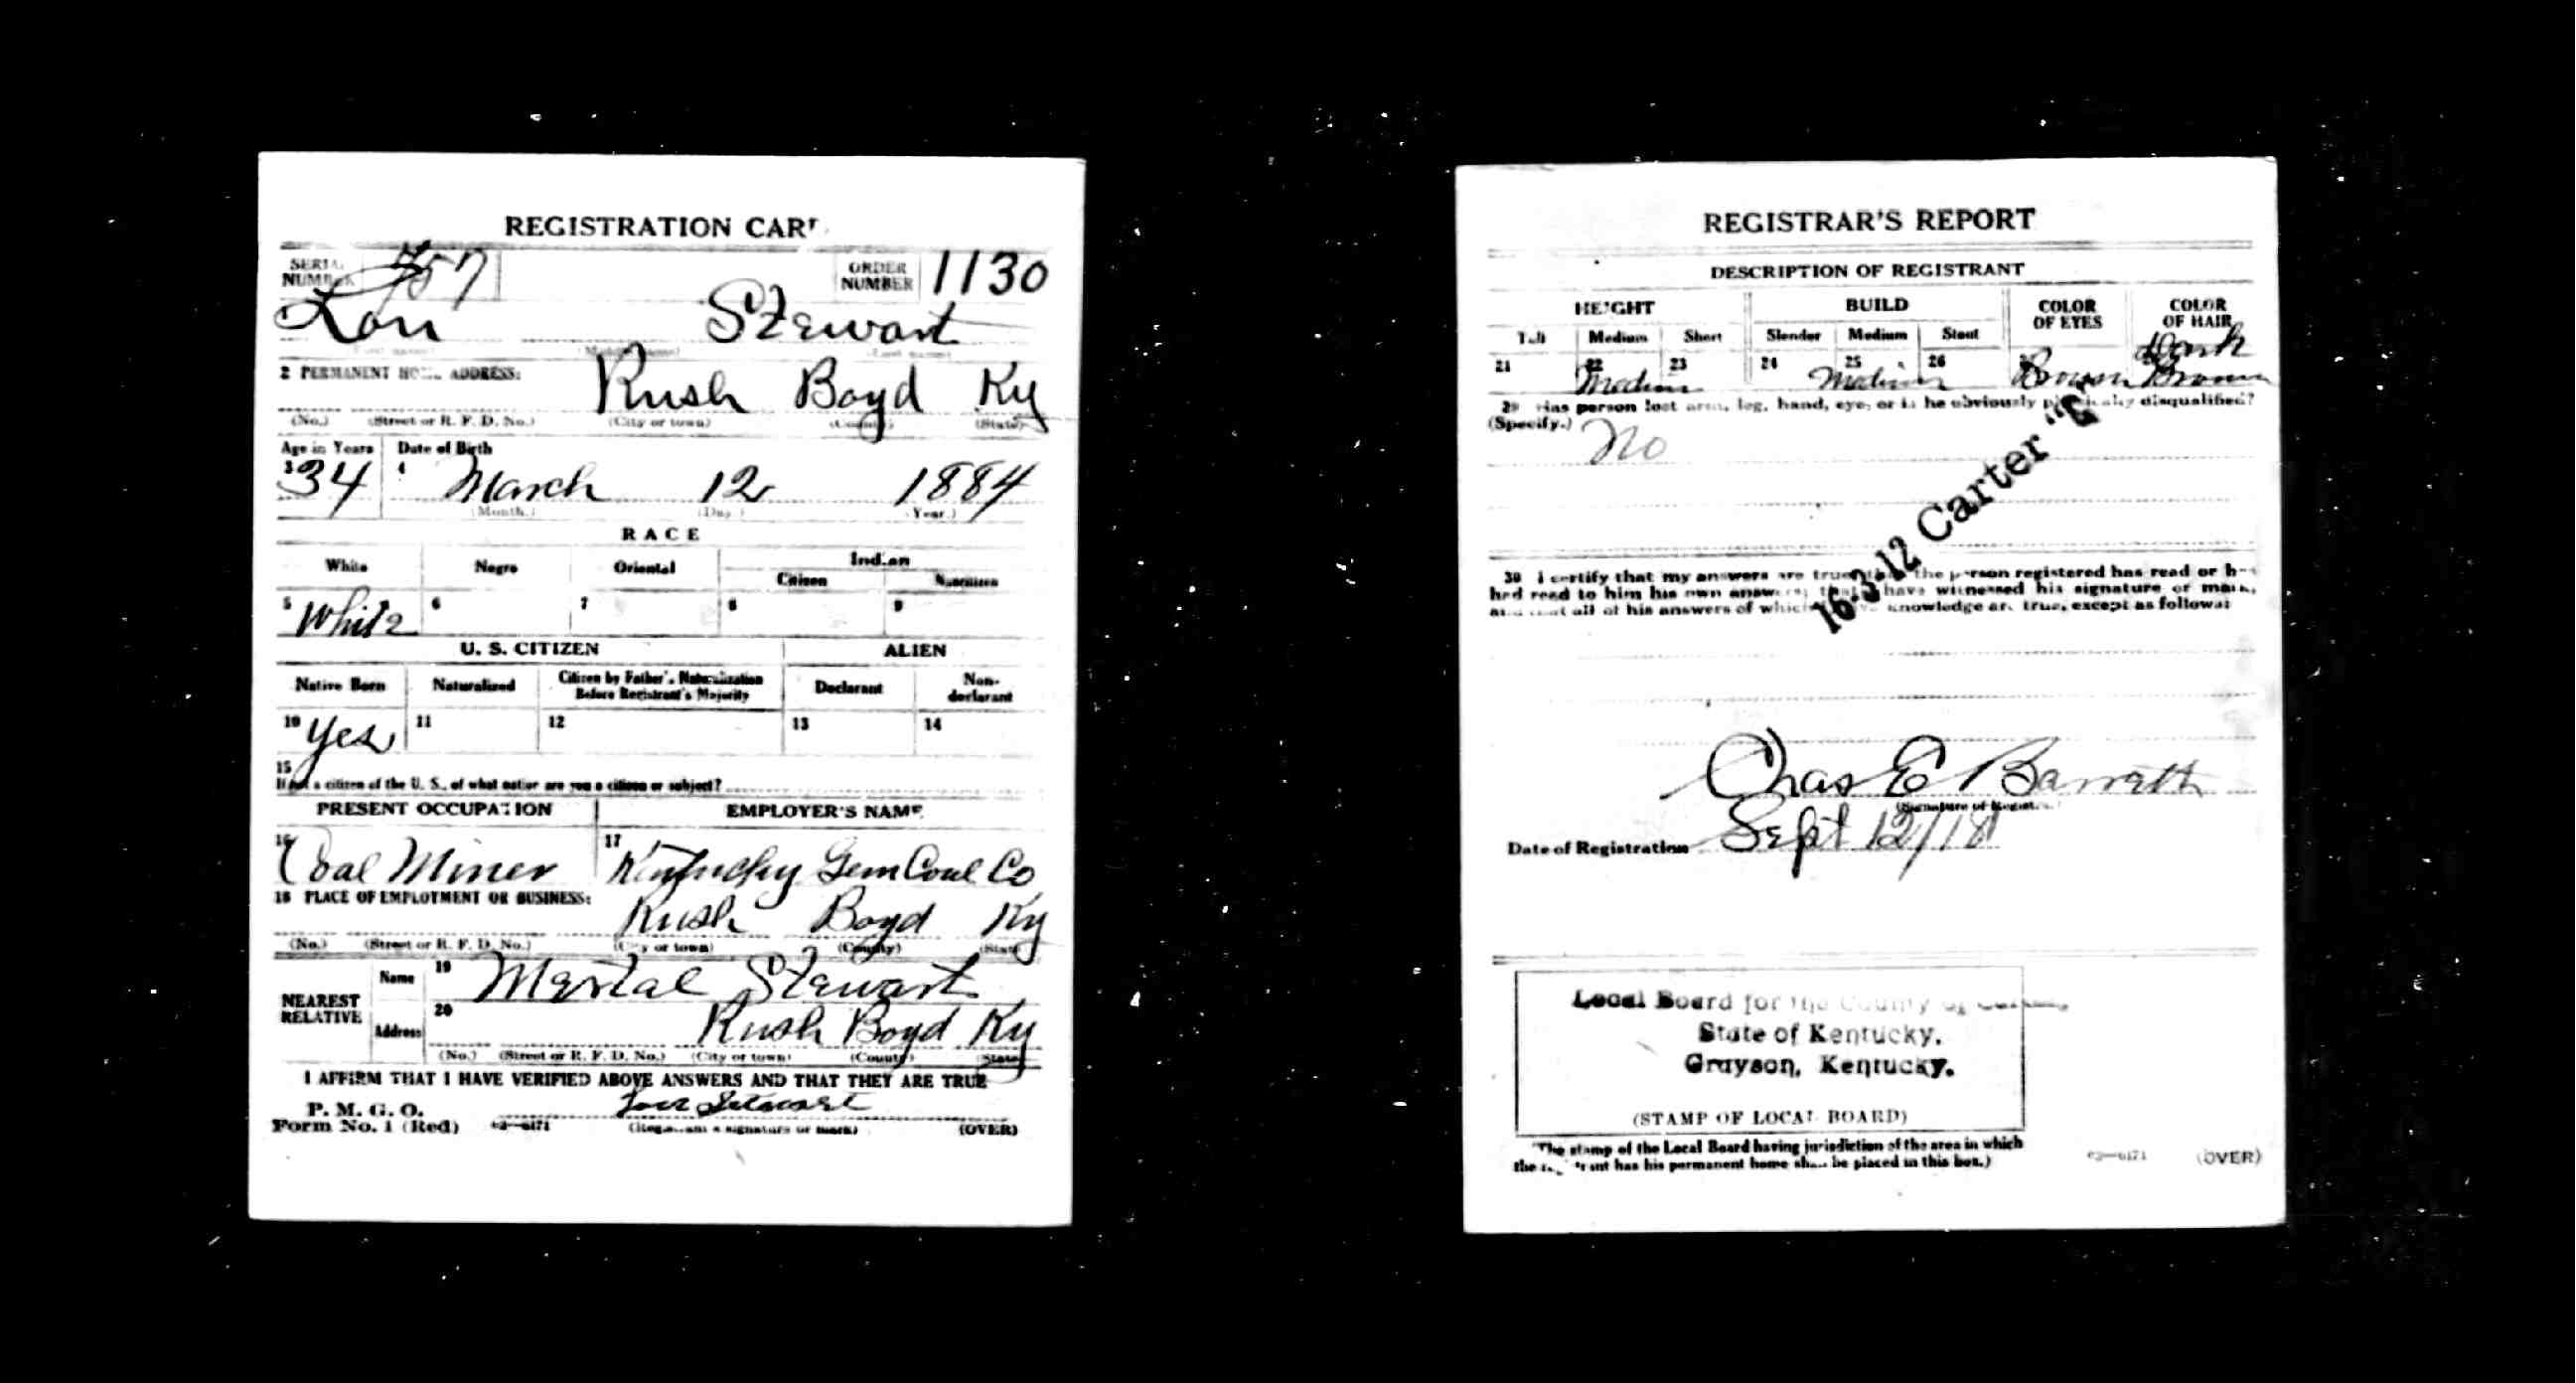 REGISTRATION CARD
SERIAL NUMBER 757
ORDER NUMBER 1130
1 Lon Stewart
(First name) (Middle name) (Last name)
2 PERMANENT HOME ADDRESS:
Rush Boyd Ky
(No.) (Street or R. F. D. No.) (City or town) (County) (State)
Age in Years Date of Birth
3 34 4 March 12 1884
(Month.) (Day.) (Year.)
RACE
White Negro Oriental Indian
Citizen Noncitizen
5 White 6 7 8 9
U. S. CITIZEN ALIEN
Native Born Naturalized Citizen by Father's Naturalization Before Registrant's Majority Declarant Non-declarant
10 Yes 11 12 13 14
15
If not a citizen of the U. S., of what nation are you a citizen or subject?
PRESENT OCCUPATION EMPLOYER'S NAME
16 Coal Miner 17 Kentucky Gem Coal Co
18 PLACE OF EMPLOYMENT OR BUSINESS:
Rush Boyd Ky
(No.) (Street or R. F. D. No.) (City or town) (County) (State)
NEAREST RELATIVE
Name 19 Stewart
Address 20 Rush Boyd Ky
(No.) (Street or R. F. D. No.) (City or town) (County) (State)
I AFFIRM THAT I HAVE VERIFIED ABOVE ANSWERS AND THAT THEY ARE TRUE
P. M. G. O.
Form No. 1 (Red)
Stewart
(Registrant's signature or mark) (OVER)
REGISTRAR'S REPORT
DESCRIPTION OF REGISTRANT
HEIGHT BUILD COLOR OF EYES COLOR OF HAIR
Tall Medium Short Slender Medium Stout
21 22 23 24 25 26
Medium Medium Brown Dark Brown
29 Has person lost arm, leg, hand, eye, or is he obviously physically disqualified?
(Specify.) No
16-3-12 Carter "C"
30 I certify that my answers are true, that the person registered has read or has
had read to him his own answers, that I have witnessed his signature or mark,
and that all of his answers of which I have knowledge are true, except as follows:
Chas E Barrett
(Signature of Registrar.)
Date of Registration Sept 12/18
Local Board for the County of
State of Kentucky.
Grayson, Kentucky.
(STAMP OF LOCAL BOARD)
(The stamp of the Local Board having jurisdiction of the area in which
the registrant has his permanent home shall be placed in this box.)
(OVER)